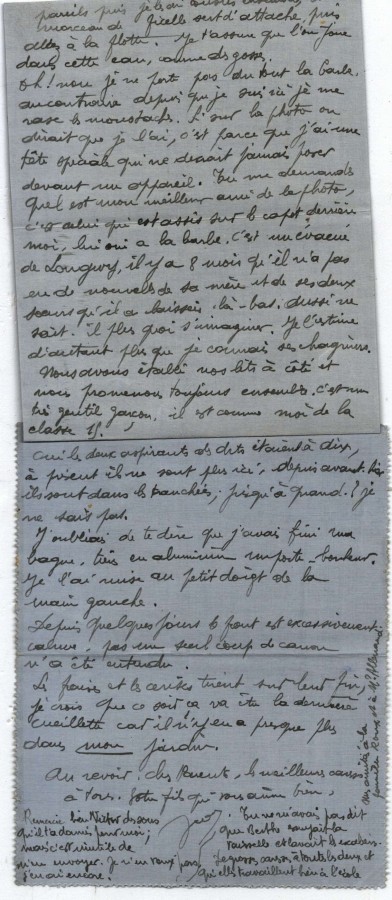 pareils puis je
morceau de ficelle sert d'attache, puis
allez à la flotte. Je t'assure que l'on joue
dans cette eau, comme des gosses.
Oh! non je ne porte pas du tout la barbe.
au contraire depuis que je suis ici je me
rase les moustaches. Si sur la photo on
dirait que je l'ai, c'est parce que j'ai une
tête spéciale qui ne devait jamais poser
devant un appareil. Tu me demandes
quel est mon meilleur ami de la photo,
c'est celui qui est assis sur le capot derrière
moi, lui oui a la barbe. C'est un évacué
de Longwy, il y a 8 mois qu'il n'a pas
eu de nouvelles de sa mère et de ses deux
sœurs qu'il a laissées là-bas. Aussi ne
sait-il plus quoi s'imaginer. Je l'estime
d'autant plus que je connais ses chagrins.
Nous avons établi nos lits à côté et
nous promenons toujours ensemble. C'est un
très gentil garçon, il est comme moi de la
classe 15.
Oui les deux aspirants étaient à dix,
à présent ils ne sont plus ici, depuis avant-hier
ils sont dans les tranchées, jusqu'à quand? je
ne sais pas.
J'oubliais de te dire que j'avais fini ma
bague, tirée en aluminium porte-bonheur.
Je l'ai mise au petit doigt de la
main gauche.
Depuis quelques jours le front est excessivement
calme, pas un seul coup de canon
n'a été entendu.
Les fraises et les cerises tirent sur leur fin,
je crois que ce soir ça va être la dernière
cueillette car il n'y en a presque plus
dans mon jardin.
Au revoir, chers Parents, les meilleures caresses
à tous. Votre fils qui vous aime bien,
Remercie bien Victor des sous
qu'il t'a donnés pour moi;
mais c'est inutile de
m'en envoyer. Je n'en veux pas
j'en ai encore.
Tu ne m'avais pas dit
que Berthe
et lavait les escaliers.
De grosses caresses à toutes les deux et
qu'elles travaillent bien à l'école
Mes amitiés à la
famille